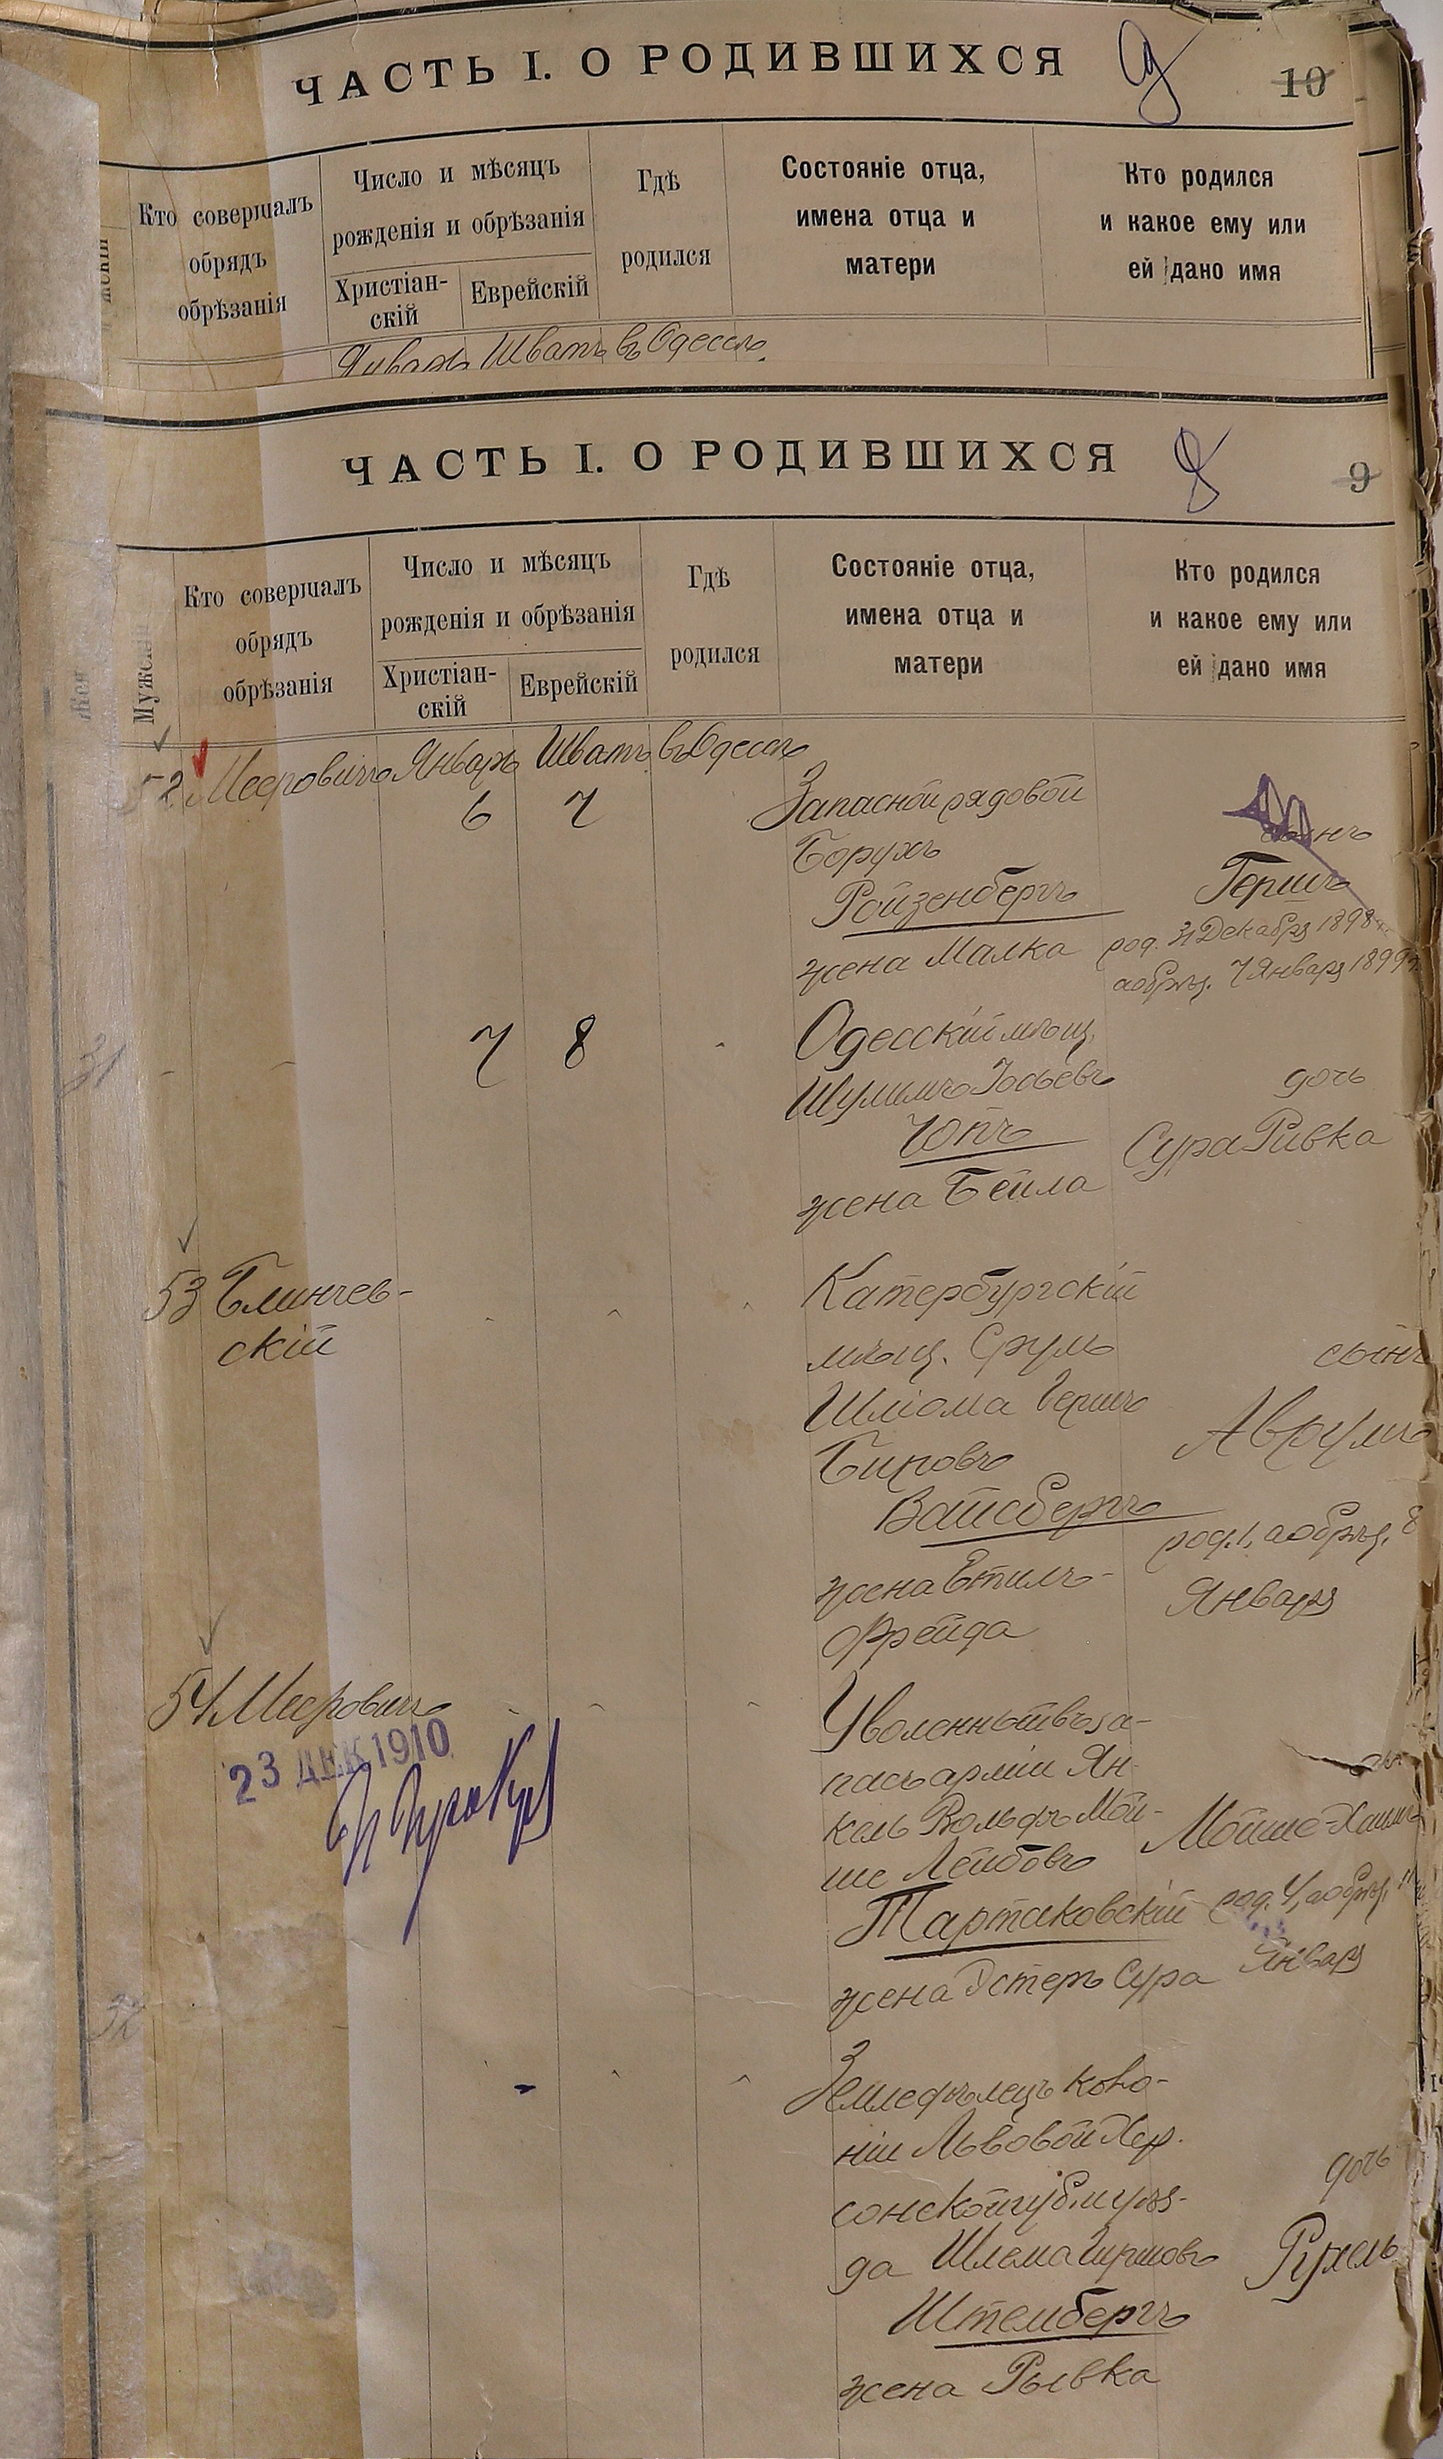 ЧАСТЬ I. О РОДИВШИХСЯ
9
10
Кто совершалъ
обрядъ
обрѣзанія
Число и мѣсяцъ
рожденія и обрѣзанія
Христіан-
скій
Еврейскій
Гдѣ
родился
Состояніе отца,
имена отца и
матери
Кто родился
и какое ему или
ей дано имя
Январь Шватъ въ Одессѣ
ЧАСТЬ I. О РОДИВШИХСЯ
8
9
Мужскій
Кто совершалъ
обрядъ
обрѣзанія
Число и мѣсяцъ
рожденія и обрѣзанія
Христіан-
скій
Еврейскій
Гдѣ
родился
Состояніе отца,
имена отца и
матери
Кто родился
и какое ему или
ей дано имя
52 Мееровичъ Январь Шватъ въ Одессѣ
6 7
Запасной рядовой
Борухъ
Ройзенбергъ
жена Малка
сынъ
Гершъ
род. 31 Декабря 1898 г.
а обрѣз. 7 Января 1899 г.
31
7 8
Одесскій мѣщ.
Шулимъ Іосьевъ
Юпъ
жена Бейла
дочь
Сура Ривка
53 Блинчев-
скій
Катербургскій
мѣщ. Срулъ
Шліома Гершъ
Бировъ
Вайсбергъ
жена Этилъ-
Фрейда
сынъ
Аврумъ
род. 1, а обрѣз. 8
Января
54 Мееровичъ
23 ДЕК 1910
Уволенный въ за-
пасъ арміи Ян-
кель Вольфъ Мой-
ше Лейбовъ
Тартаковскій
жена Эстеръ Сура
Мойше-Хаимъ
род. 4, а обрѣз. 11
Января
32
Земледѣлецъ коло-
ніи Львовой Хер-
сонской губ. и уѣз-
да Шлема Гиршовъ
Штембергъ
жена Рывка
дочь
Рухель